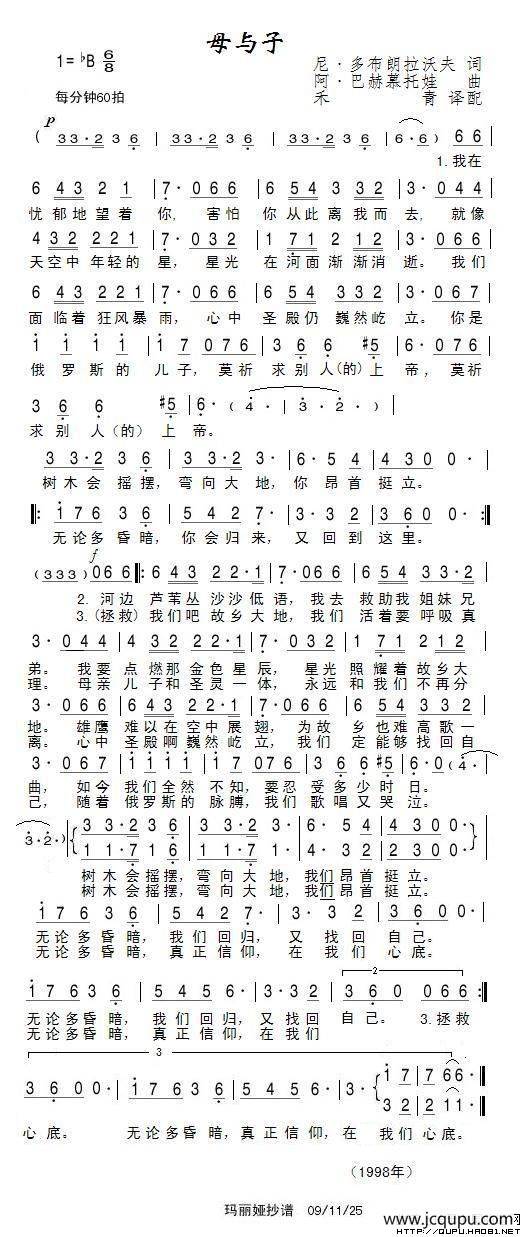 母与子
1=♭B 6/8
尼·多布朗拉沃夫 词
阿·巴赫慕托娃 曲
禾 青 译配
每分钟60拍
p
( 33·2 33·2 33·2 33·2 6·6· ) 66
1.我在
6 43 2 1 | 7· 066 | 6 54 3 32 | 3· 044 |
忧郁地望着 你, 害怕 你从此离我而 去, 就像
4 332 2 21 | 2· 066 | 1 71 2 12 | 3· 066 |
天空中 年轻的 星, 星光 在河面渐渐消 逝。 我们
6 43 2 21 | 7· 066 | 6 54 3 332 | 3· 067 |
面临着 狂风暴 雨, 心中 圣殿仍 巍然屹 立。 你是
1 1 1 1 | 1 076 | 3 6 6 #5 | 6· 076 |
俄罗斯的 儿子, 莫祈 求别人(的)上 帝, 莫祈
3 6 6 #5 | 6· ( 4· | 3· 2· ) |
求别 人(的) 上 帝。
3 3·2 3 6 | 3 3·2 3· | 6·5 4 | 4 3 0 0· |
树木会 摇摆, 弯向大 地, 你 昂首 挺立。
‖: 1 7 6 3 6 | 5 4 2 7· | 3·3 3 2 | 3 6 0 0· :‖
无论多 昏暗, 你 会归 来, 又 回到 这里。
f
(333) 066 ‖: 6 43 22·1 | 7· 066 | 6 54 3 332 |
2. 河边 芦苇丛 沙沙低 语, 我去 救助我 姐妹兄
3.(拯救)我们吧 故乡大 地, 我们 活着要 呼吸真
3· 044 | 4 332 22·1 | 2· 066 | 1 71 2 12 |
弟。 我要 点燃那 金色星 辰, 星光 照耀着 故乡大
理。 母亲 儿子和 圣灵一 体, 永远 和我们 不再分
3· 066 | 6 43 22·1 | 7· 066 | 6 54 3 332 |
地。 雄鹰 难以在 空中展 翅, 为故 乡也难 高歌一
离。 心中 圣殿啊 巍然屹 立, 我们 定能够 找回自
3· 067 | 1 1 1 1 | 1 076 | 3 6 6 #5 | 6·0 ( 4· |
曲, 如今 我们全然 不知, 要忍 受多少时 日。
己, 随着 俄罗斯的 脉膊, 我们 歌唱又哭 泣。
3·2· ) | 3 3·2 3 6 | 3 3·2 3· | 6·5 4 | 4 3 0 0· |
1 1·7 6 | 1 1·7 1· | 4·3 2 | 2 1 0 0· |
树木会 摇摆, 弯向大 地, 我们 昂首 挺立。
树木会 摇摆, 弯向大 地, 我们 昂首 挺立。
1 7 6 3 6 | 5 4 2 7· | 3·3 3 2 | 3 6 0 0· |
无论多 昏暗, 我 们回 归, 又 找回 自己。
无论多 昏暗, 真 正信 仰, 在 我们 心底。
2
1 7 6 3 6 | 5 4 5 6· | 3·3 3 2 | 3 6 0 066 :‖
无论多 昏暗, 我 们回 归, 又 找回 自己。 3.拯救
无论多 昏暗, 真 正信 仰, 在 我们
3
3 6 0 0· | 1 7 6 3 6 | 5 4 5 6· | 3· 1 7 | 7 66· ‖
3 2 | 2 11· ‖
心底。 无论多昏暗,真正信仰,在 我们心底。
(1998年)
玛丽娅抄谱 09/11/25
www.jcqupu.com
HTTP://QUPU.HAO81.NET